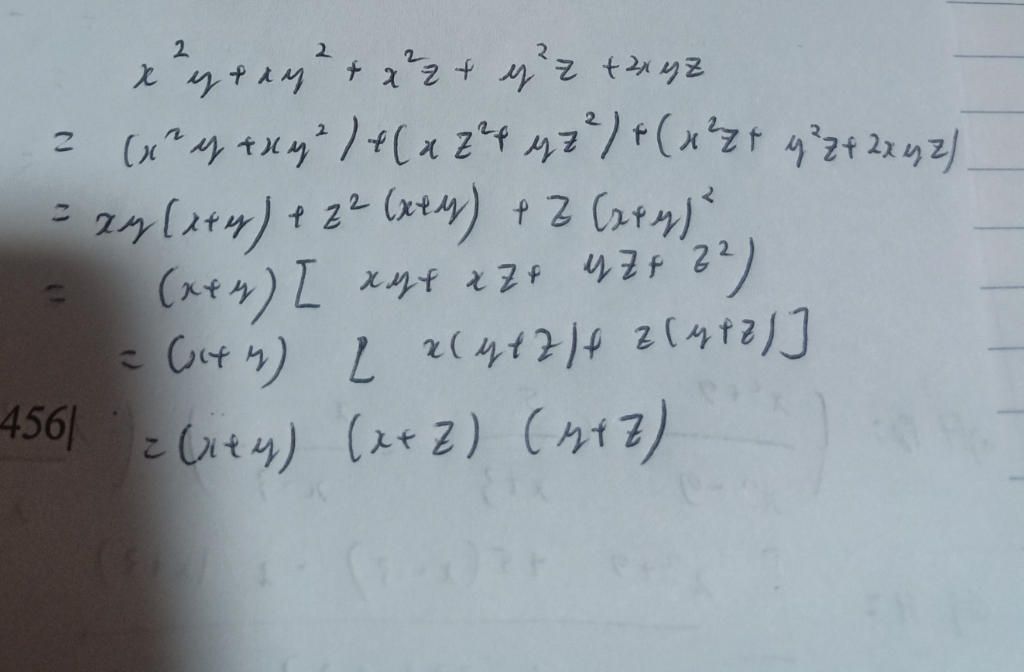 x²y + xy² + x²z + y²z + 2xyz
= (x²y + xy²) + (xz² + yz²) + (x²z + y²z + 2xyz)
= xy(x+y) + z²(x+y) + z(x+y)²
= (x+y)[xy + xz + yz + z²)
= (x+y) [x(y+z) + z(y+z)]
456| = (x+y) (x+z) (y+z)